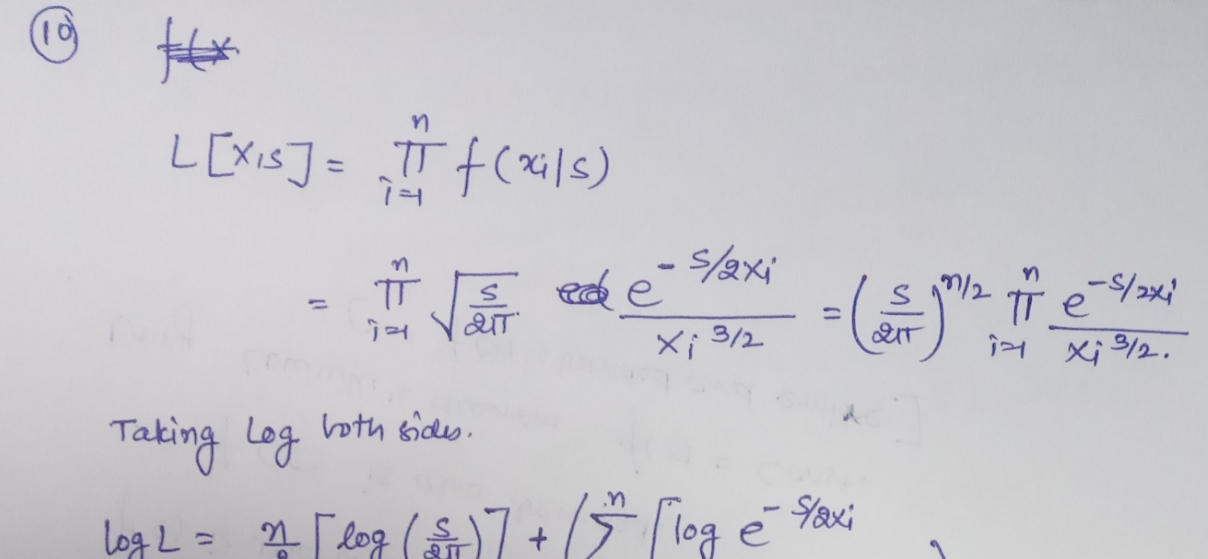 (10)
L[X,s] = n ∏ i=1 f(xi|s)
= n ∏ i=1 √(s/2π) e^(-s/2xi) / xi^(3/2) = (s/2π)^(n/2) n ∏ i=1 e^(-s/2xi) / xi^(3/2).
Taking Log both sides.
log L = n/2 [log (s/2π)] + (n ∑ [log e^(-s/2xi)